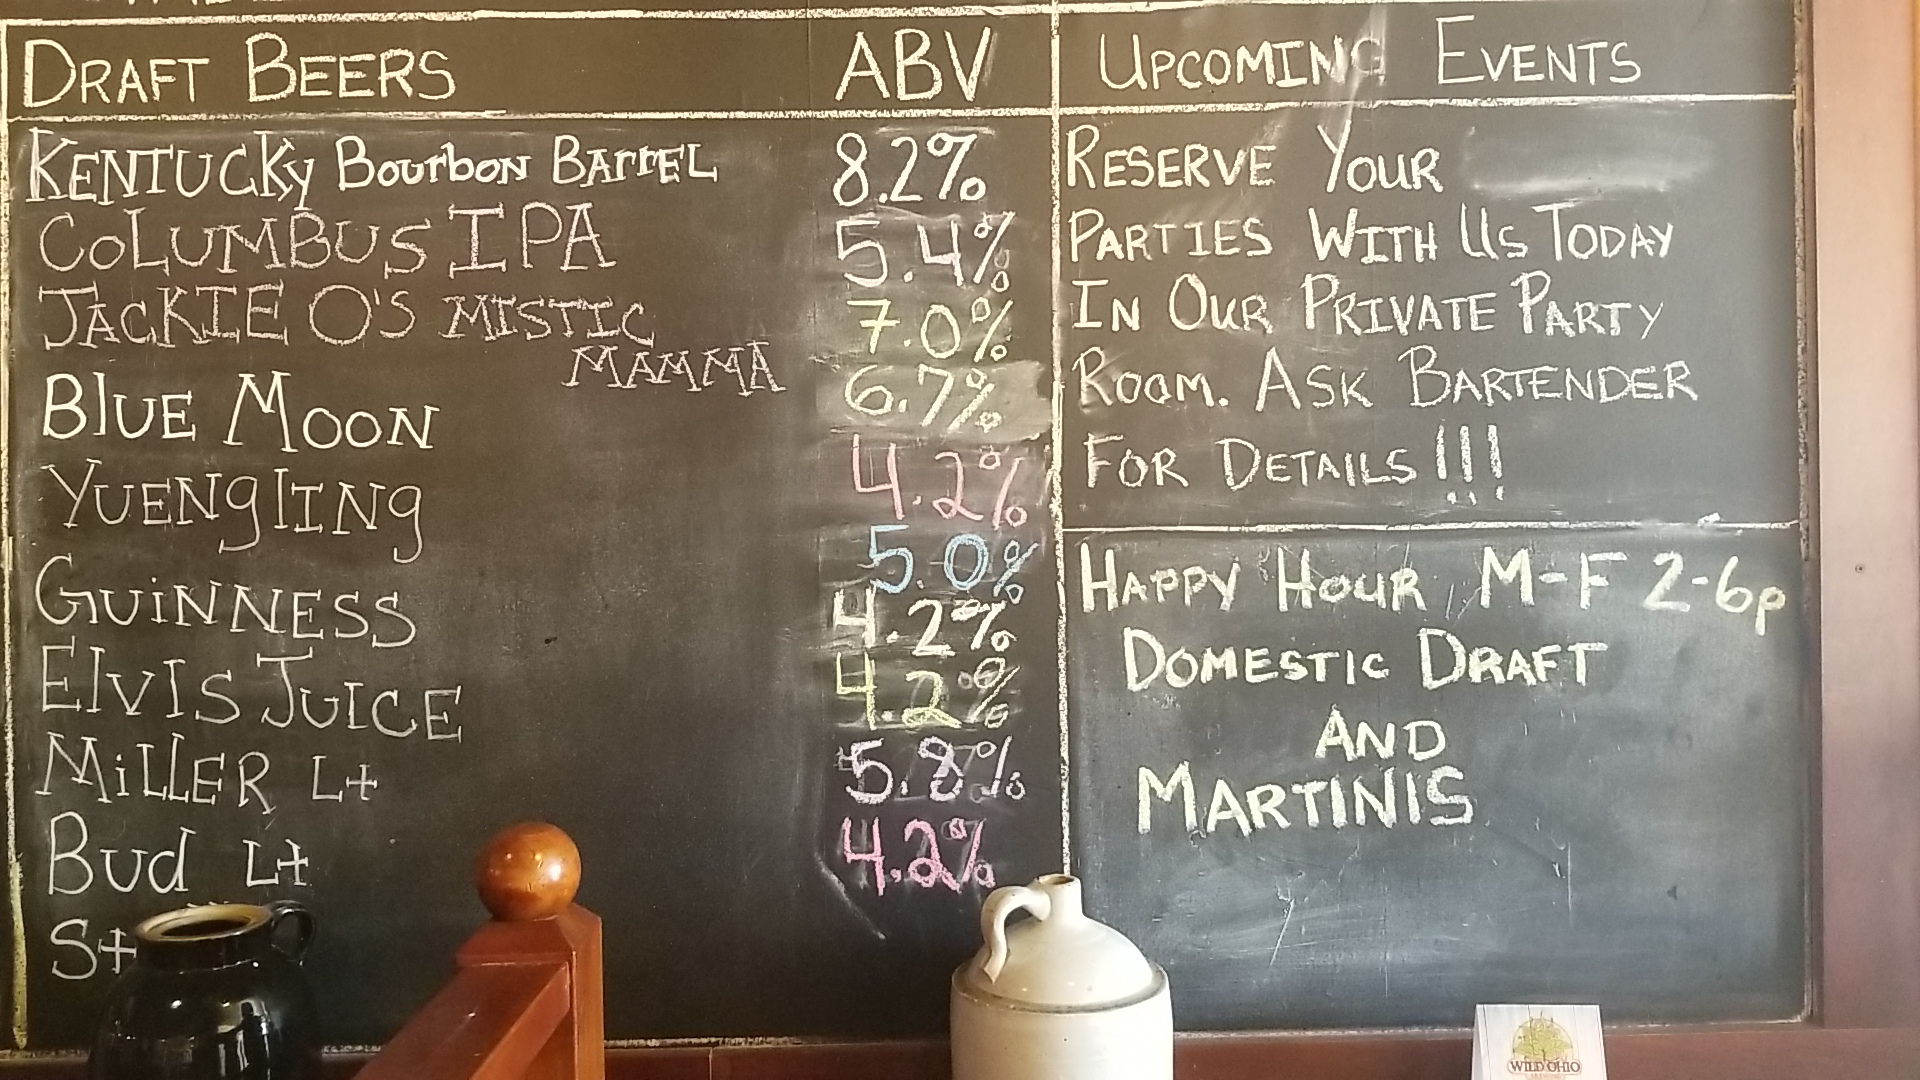 DRAFT BEERS ABV
KENTUCKy BourboN BArrEL 8.2%
CoLUMBUS IPA 5.4%
JACKIE O'S MISTIC 7.0%
MAMMA 6.7%
BlUE MOON
YUENglINg 4.2%
5.0%
GUiNNESS 4.2%
ElVIS JUICE 4.2%
MiLLER Lt 5.8%
Bud Lt 4.2%
UPCOMING EVENTS
RESERVE YOUR
PARTIES WITH US TODAY
IN OUR PRIVATE PARTY
ROOM. ASK BARTENDER
FOR DETAILS!!!
HAPPY HOUR M-F 2-6p
DOMESTIC DRAFT
AND
MARTINIS
WILD OHIO